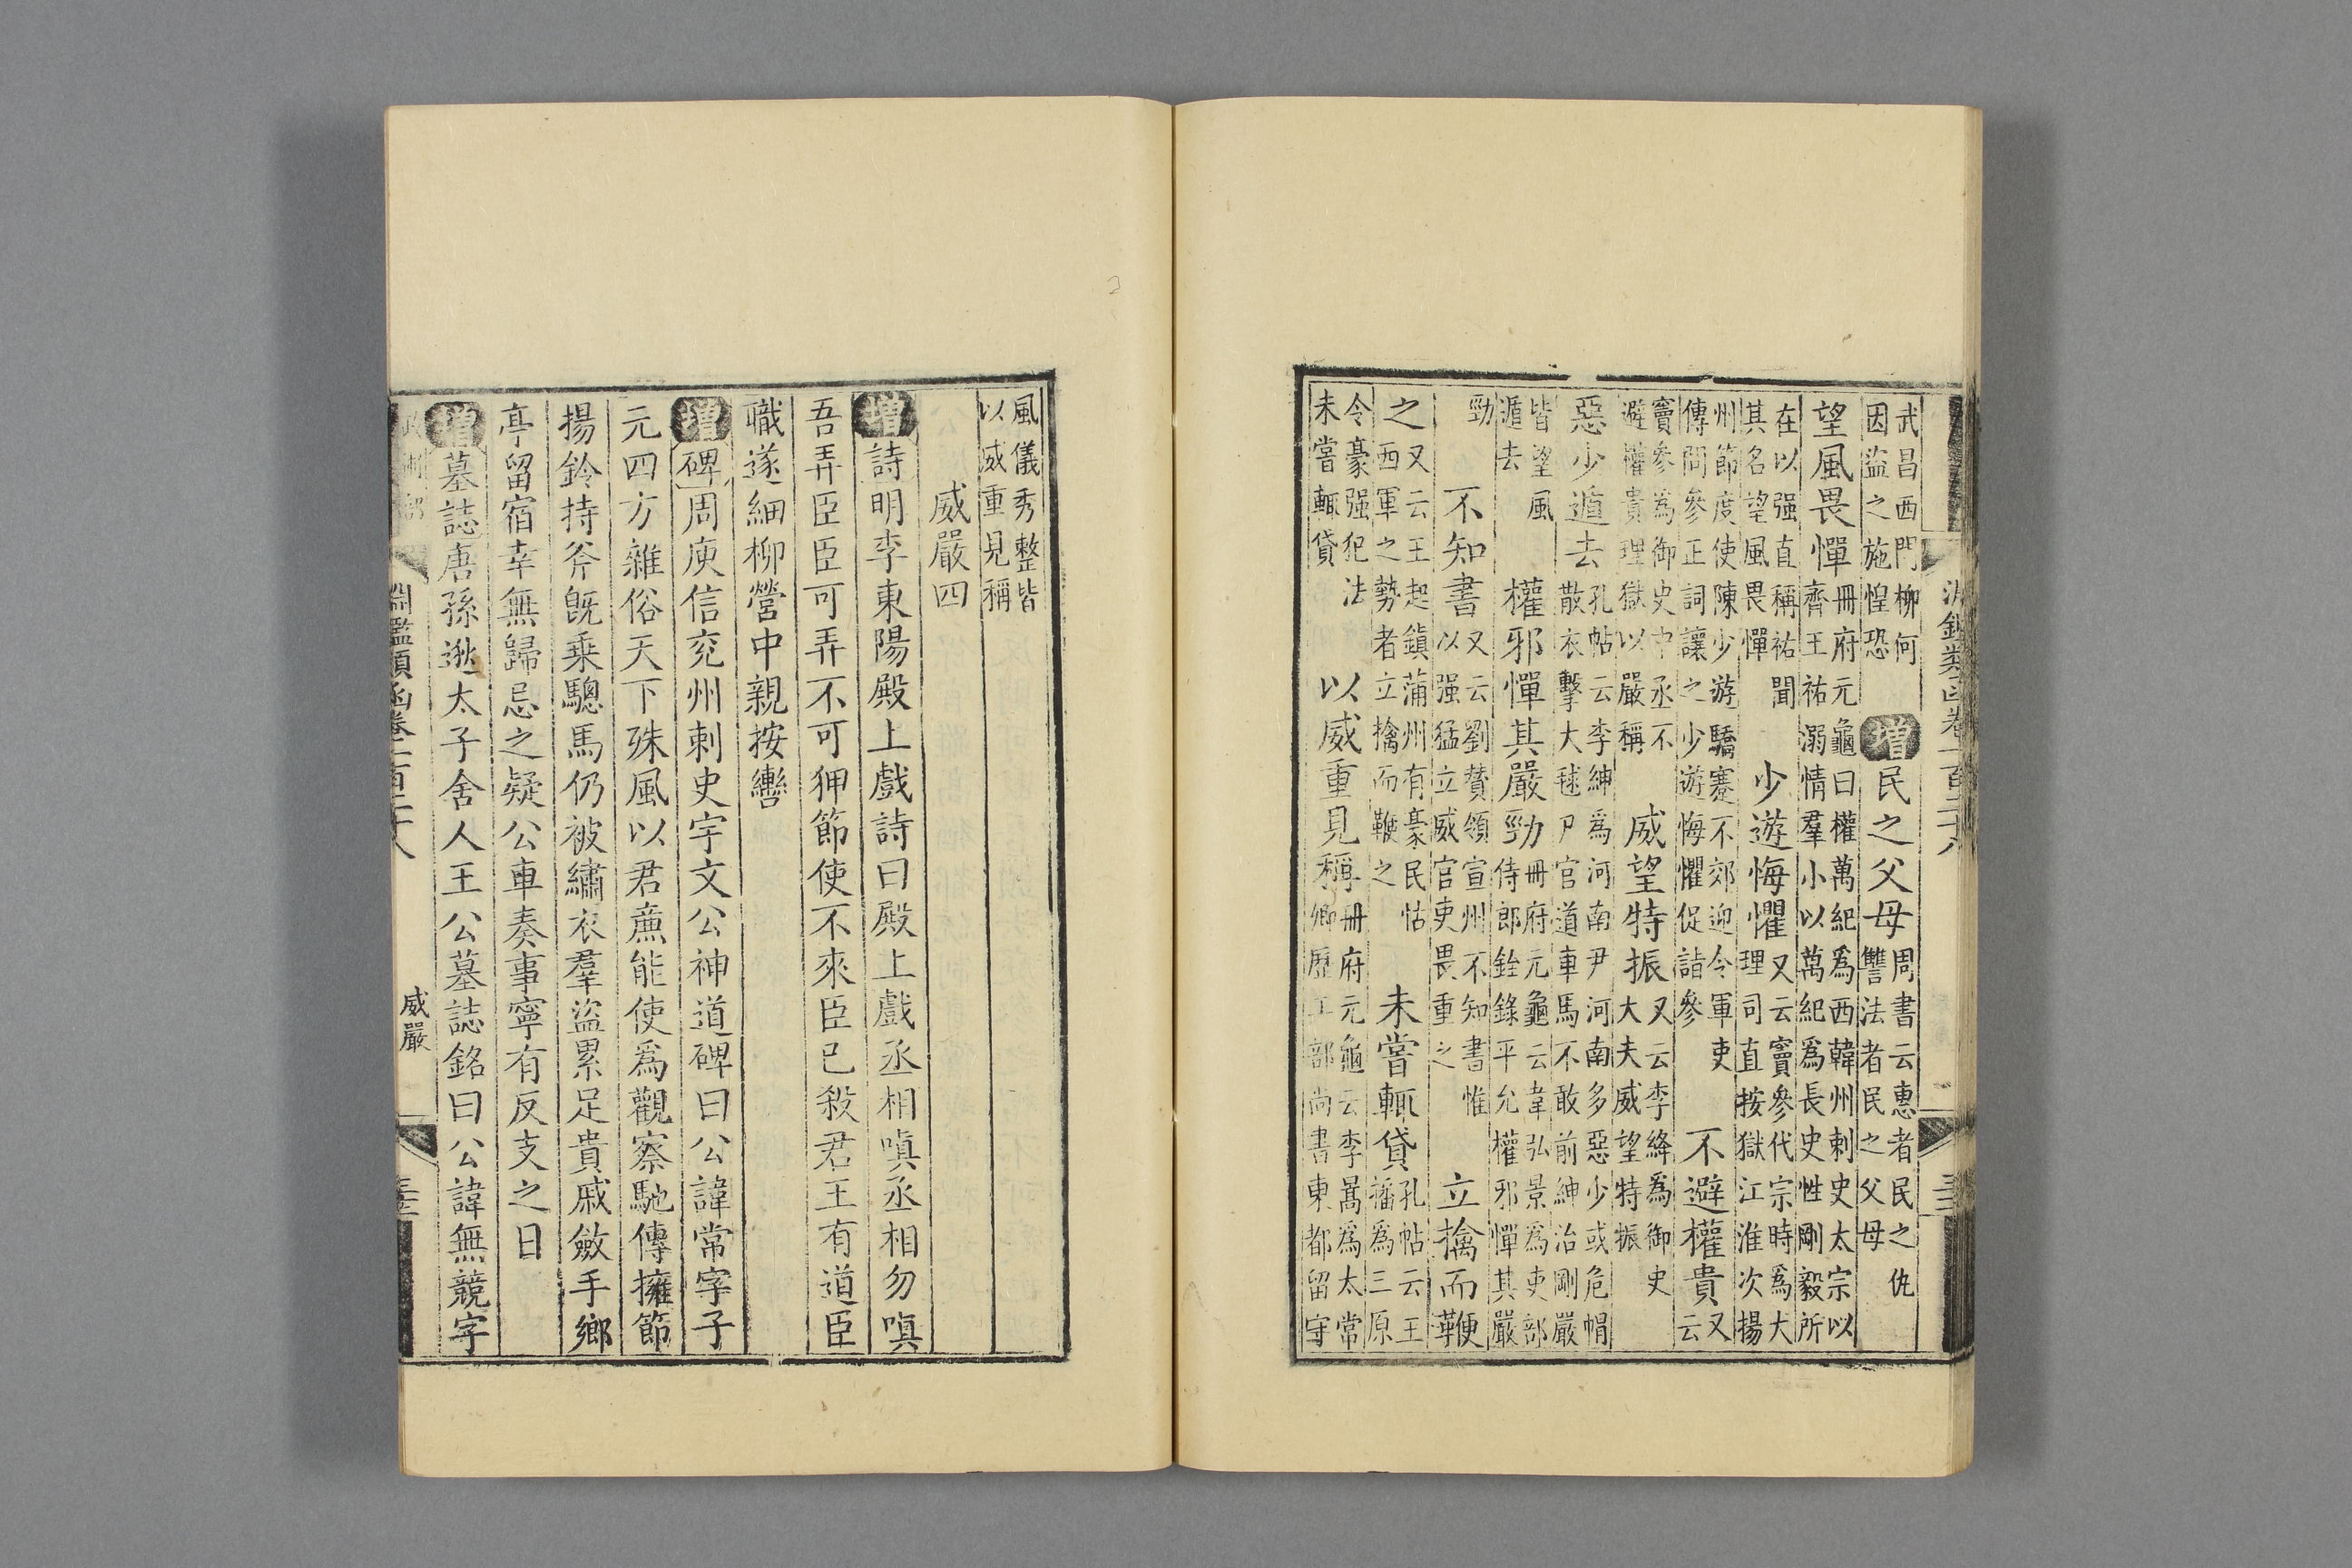 淵鑑類函卷一百二十八
武昌西門柳何因盜之施惶恐 增 民之父母 周書云惠者民之仇讐法者民之父母
望風畏憚 冊府元龜曰權萬紀爲西韓州刺史太宗以齊王祐溺情羣小以萬紀爲長史性剛毅所
在以强直稱祐聞其名望風畏憚 少遊悔懼 又云竇參代宗時爲大理司直按獄江淮次揚
州節度使陳少游驕蹇不郊迎令軍吏傳問參正詞讓之少遊悔懼促詣參 不避權貴 又云
竇參為御史中丞不避權貴理獄以嚴稱 威望特振 又云李絳為御史大夫威望特振
惡少遁去 孔帖云李紳為河南尹河南多惡少或危帽散衣擊大毬尸官道車馬不敢前紳治剛嚴
皆望風遁去 權邪憚其嚴勁 冊府元龜云韋弘景爲吏部侍郎銓錄平允權邪憚其嚴
勁 不知書 又云劉贊領宣州不知書惟以强猛立威官吏畏重之 立擒而鞭
之 又云王起鎮蒲州有豪民怙西軍之勢者立擒而鞭之 未嘗輒貸 孔帖云王播爲三原
令豪强犯法未嘗輒貸 以威重見稱 冊府元龜云李暠爲太常卿歷工部尚書東都留守
風儀秀整皆以威重見稱
威嚴四
增 詩明李東陽殿上戲詩曰殿上戲丞相嗔丞相勿嗔
吾弄臣臣可弄不可狎節使不來臣已殺君王有道臣
職遂細柳營中親按轡
增 碑周庾信兖州刺史宇文公神道碑曰公諱常字子
元四方雜俗天下殊風以君廉能使爲觀察馳傳擁節
揚鈴持斧旣乗驄馬仍被繡衣羣盜累足貴戚斂手鄉
亭留宿幸無歸忌之疑公車奏事寧有反支之日
增 墓誌唐孫逖太子舍人王公墓誌銘曰公諱無競字
淵鑑類函卷一百二十八 威嚴